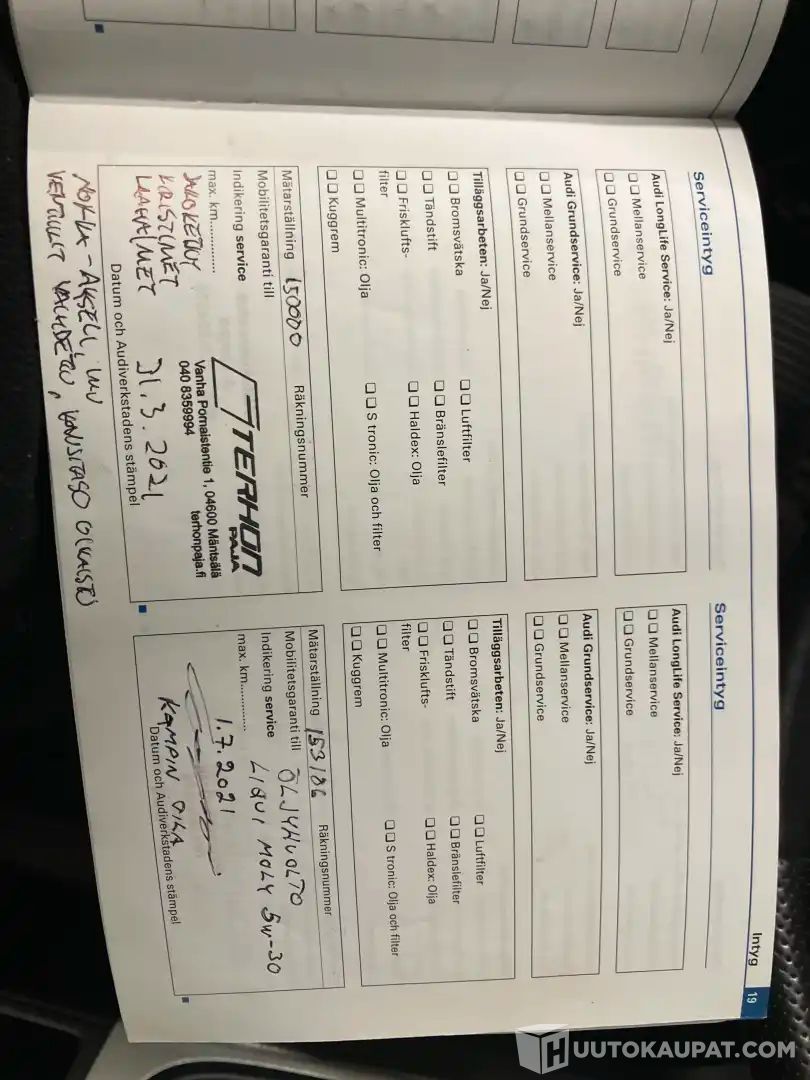 Intyg
19
Serviceintyg
Audi LongLife Service: Ja/Nej
Mellanservice
Grundservice
Audi Grundservice: Ja/Nej
Mellanservice
Grundservice
Tilläggsarbeten: Ja/Nej
Bromsvätska
Luftfilter
Tändstift
Bränslefilter
Frisklufts-
filter
Haldex: Olja
Multitronic: Olja
S tronic: Olja och filter
Kuggrem
Mätarställning 150000
Räkningsnummer
Mobilitetsgaranti till
Indikering service
max. km..............
JAKOKETJU
KRISTIMET
LAAHAIMET
TERHON
PAJA
Vanha Pornaistentie 1, 04600 Mäntsälä
040 8359994
terhonpaja.fi
31.3.2021
Datum och Audiverkstadens stämpel
NOKKA-AKSELI, IMU
VENTTIILIT VAIHDETTU,
Serviceintyg
Audi LongLife Service: Ja/Nej
Mellanservice
Grundservice
Audi Grundservice: Ja/Nej
Mellanservice
Grundservice
Tilläggsarbeten: Ja/Nej
Bromsvätska
Luftfilter
Tändstift
Bränslefilter
Frisklufts-
filter
Haldex: Olja
Multitronic: Olja
S tronic: Olja och filter
Kuggrem
Mätarställning 153186
Räkningsnummer
Mobilitetsgaranti till ÖLJYHUOLTO
Indikering service LIQUI MOLY 5W-30
max. km..............
1.7.2021
Datum och Audiverkstadens stämpel
HUUTOKAUPAT.COM